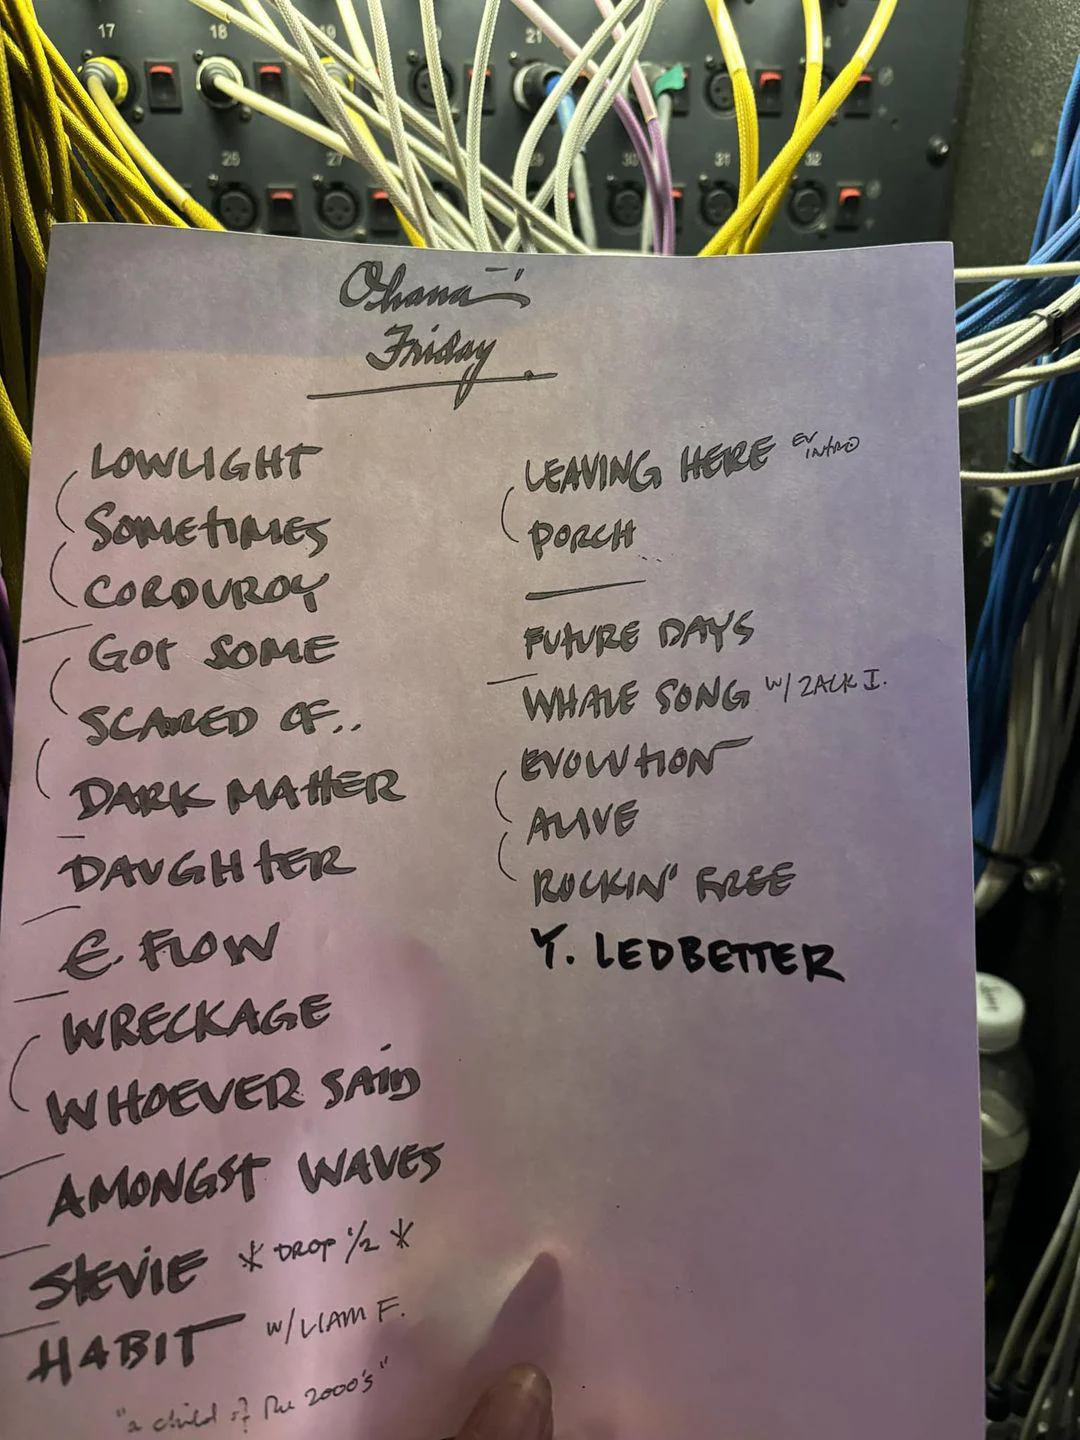 17
18
19
21
26
27
29
30
31
32
Ohana
Friday
LOWLIGHT
SOMETIMES
CORDUROY
GOT SOME
SCARED OF..
DARK MATTER
DAUGHTER
E. FLOW
WRECKAGE
WHOEVER SAID
AMONGST WAVES
STEVIE * DROP 1/2 *
HABIT w/ LIAM F.
"a child of the 2000's"
LEAVING HERE EV INTRO
PORCH
FUTURE DAYS
WHALE SONG w/ ZACK I.
EVOLUTION
ALIVE
ROCKIN' FREE
Y. LEDBETTER